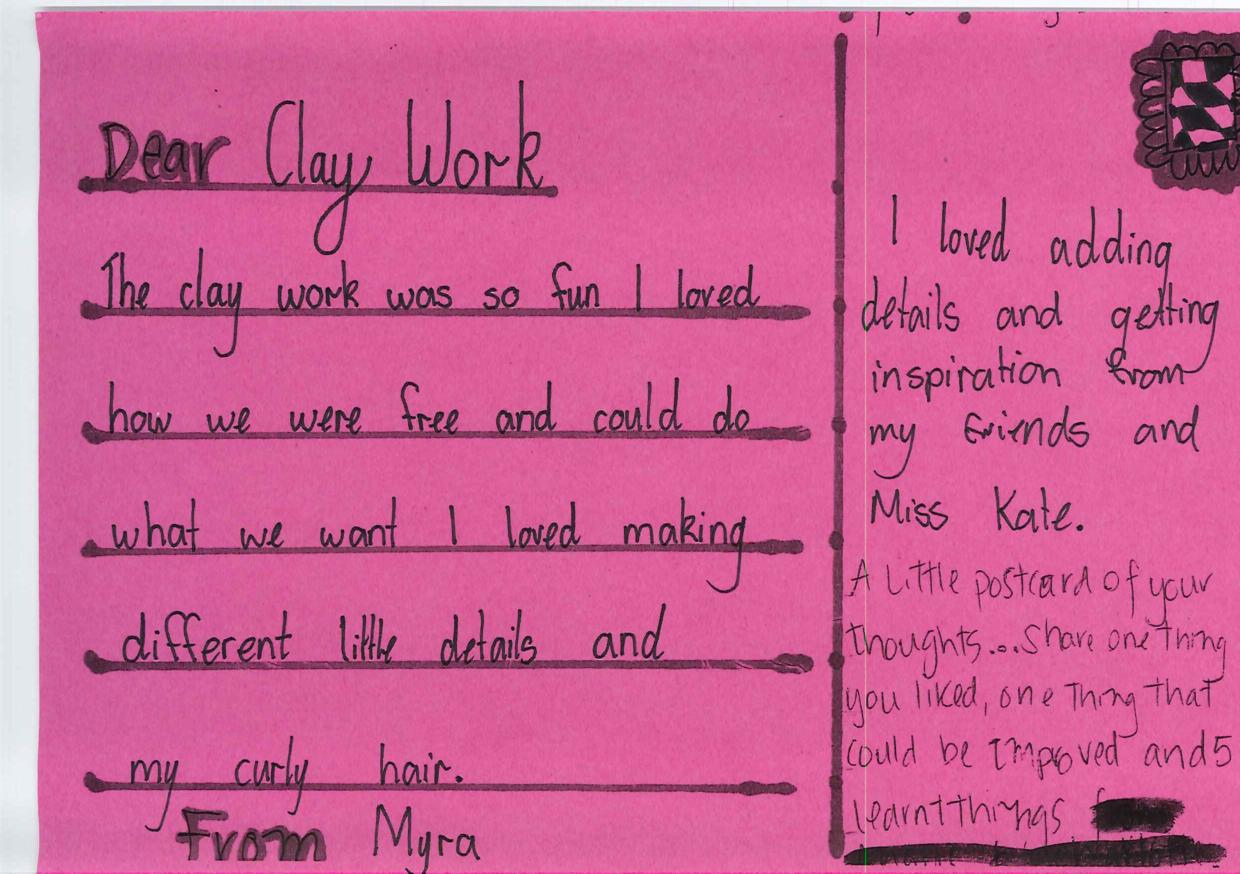 Dear Clay Work
The clay work was so fun I loved
how we were free and could do
what we want I loved making
different little details and
my curly hair.
From Myra
I loved adding
details and getting
inspiration from
my friends and
Miss Kate.
A little postcard of your
thoughts...Share one thing
you liked, one thing that
could be Improved and 5
learnt things